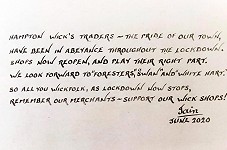 HAMPTON WICK'S TRADERS – THE PRIDE OF OUR TOWN,
HAVE BEEN IN ABEYANCE THROUGHOUT THE LOCKDOWN.
SHOPS NOW REOPEN, AND PLAY THEIR RIGHT PART.
WE LOOK FORWARD TO "FORESTERS," "SWAN" AND "WHITE HART."
SO ALL YOU WICKFOLK, AS LOCKDOWN NOW STOPS,
REMEMBER OUR MERCHANTS – SUPPORT OUR WICK SHOPS!
Iain
JUNE 2020